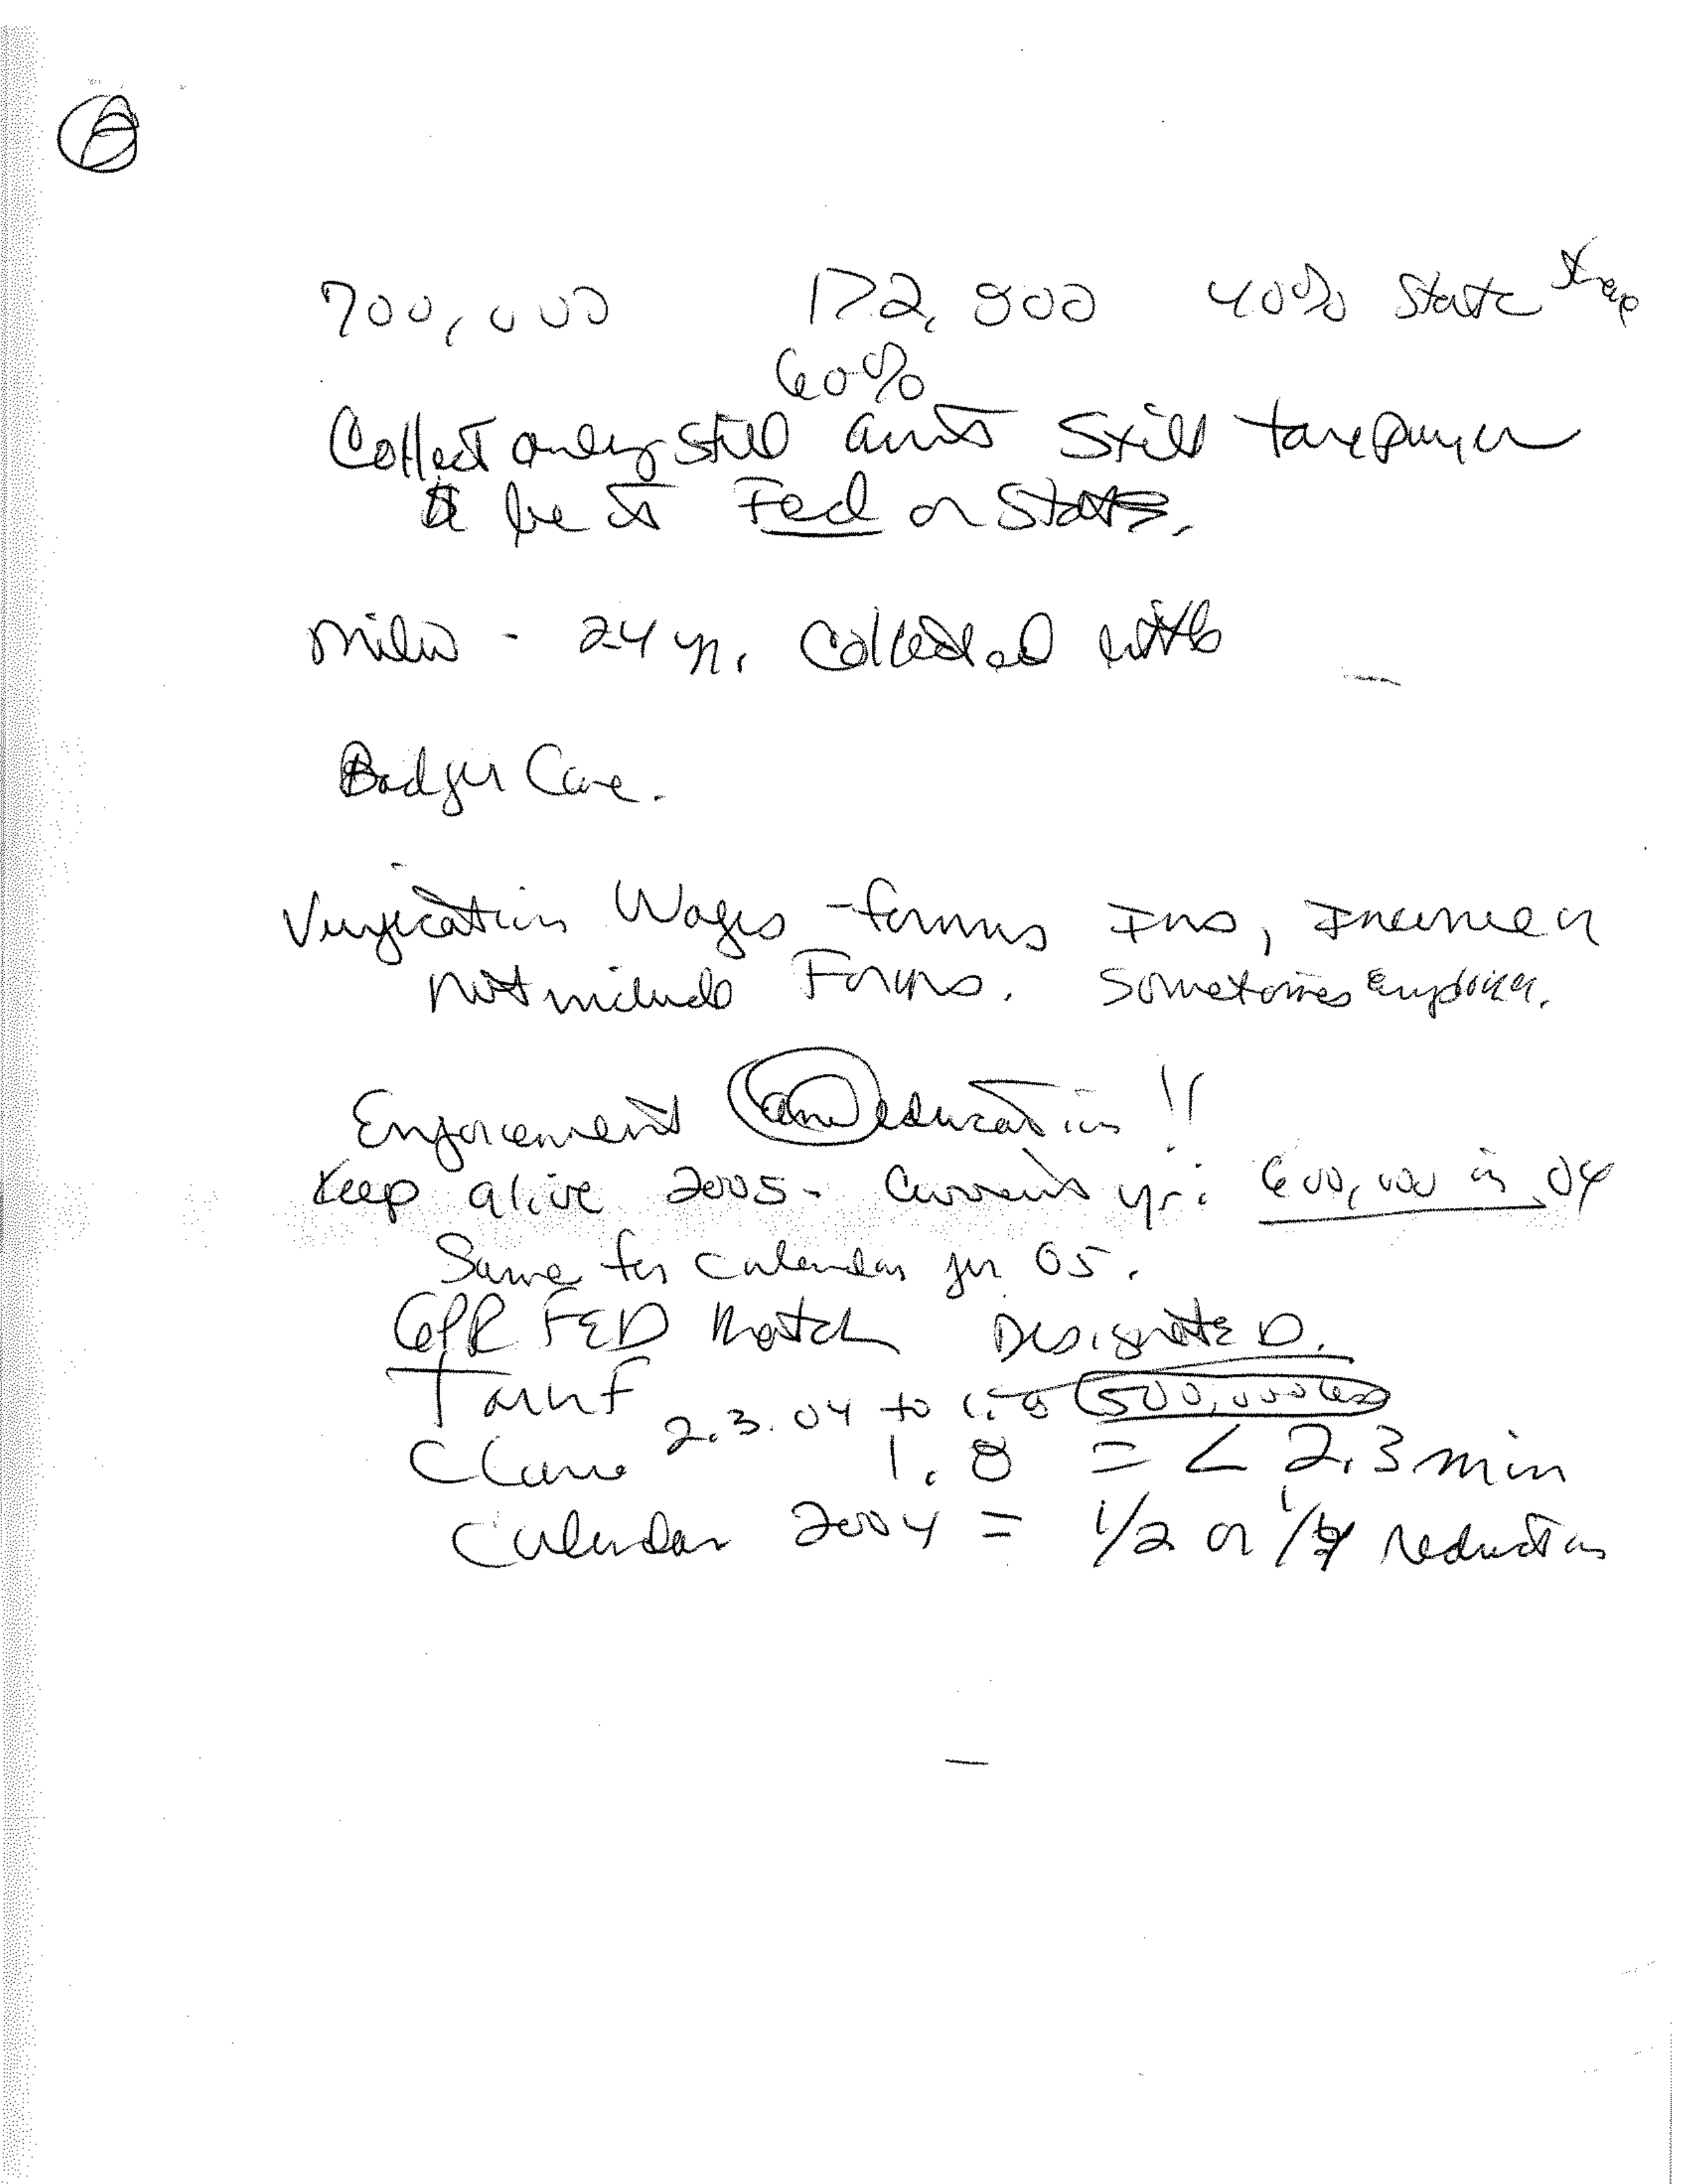 700,000 172,800 40% State
60%
Collect only still amts Still taxpayer
be it Fed or State.
Milw - 24 yr. Collected little
Badger Care.
Verification Wages - forms Ins, Income or
not include Forms. Sometimes Employer.
Enforcement and education !!
Keep alive 2005 - Current yr: 600,000 in 04
Same for Calendar yr 05.
GPR FED Match DesignateD.
Tanf
2.3.04 to 1.8 500,000 less
1.8 = < 2.3 min
Calendar 2004 = 1/2 or reduction